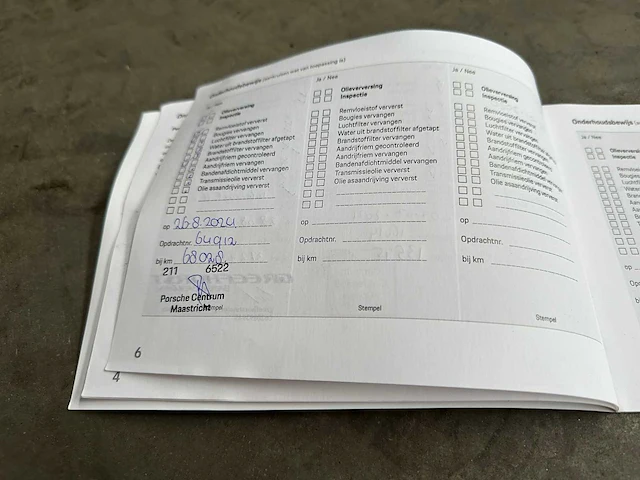 Onderhoudsbewijs (aankruisen wat van toepassing is)
Olieverversing
Inspectie
Remvloeistof ververst
Bougies vervangen
Luchtfilter vervangen
Water uit brandstoffilter afgetapt
Brandstoffilter vervangen
Aandrijfriem gecontroleerd
Aandrijfriem vervangen
Bandenafdichtmiddel vervangen
Transmissieolie ververst
Olie asaandrijving ververst
op 26.8.2024
Opdrachtnr. 64912
bij km 68028
211 6522
Porsche Centrum
Maastricht
Stempel
6
4
Ja / Nee
Olieverversing
Inspectie
Remvloeistof ververst
Bougies vervangen
Luchtfilter vervangen
Water uit brandstoffilter afgetapt
Brandstoffilter vervangen
Aandrijfriem gecontroleerd
Aandrijfriem vervangen
Bandenafdichtmiddel vervangen
Transmissieolie ververst
Olie asaandrijving ververst
op
Opdrachtnr.
bij km
Stempel
Ja / Nee
Olieverversing
Inspectie
Remvloeistof ververst
Bougies vervangen
Luchtfilter vervangen
Water uit brandstoffilter
Brandstoffilter
Aandrijfriem
Aandrijfriem
Bandenafdichtmiddel
Transmissieolie
Olie asaandrijving
op
Opdrachtnr.
bij km
Stempel
Onderhoudsbewijs
Ja / Nee
Olieverversing
Inspectie